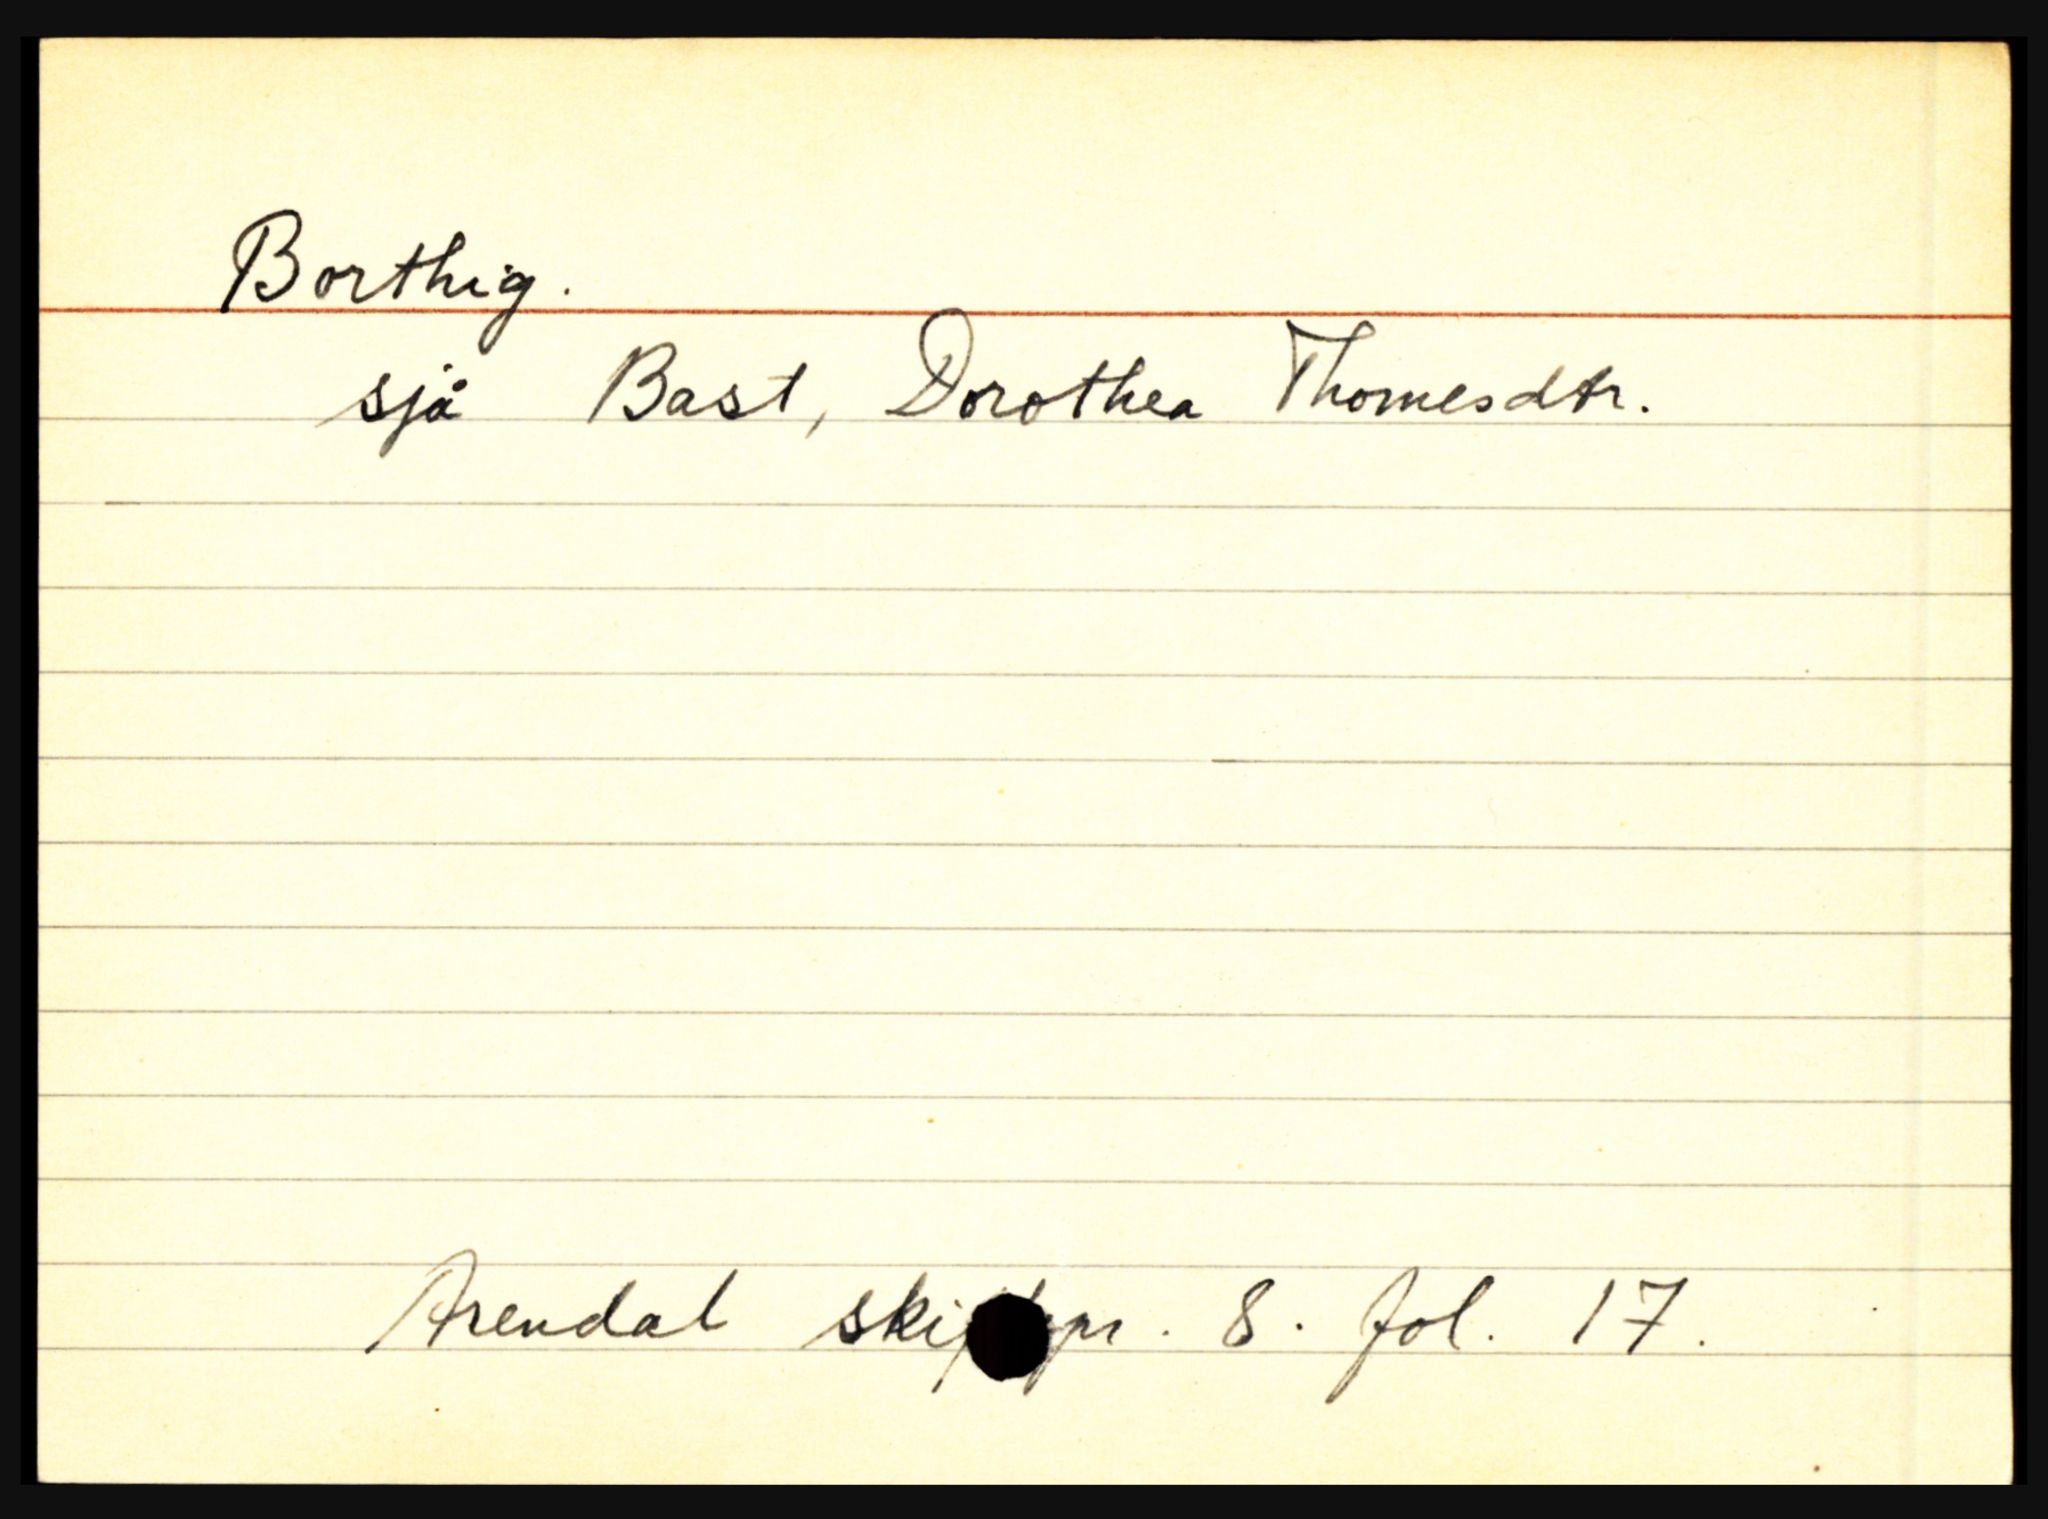 Borthig.
sjå Bast, Dorothea Thomesdtr.
Arendal 8. fol. 17.